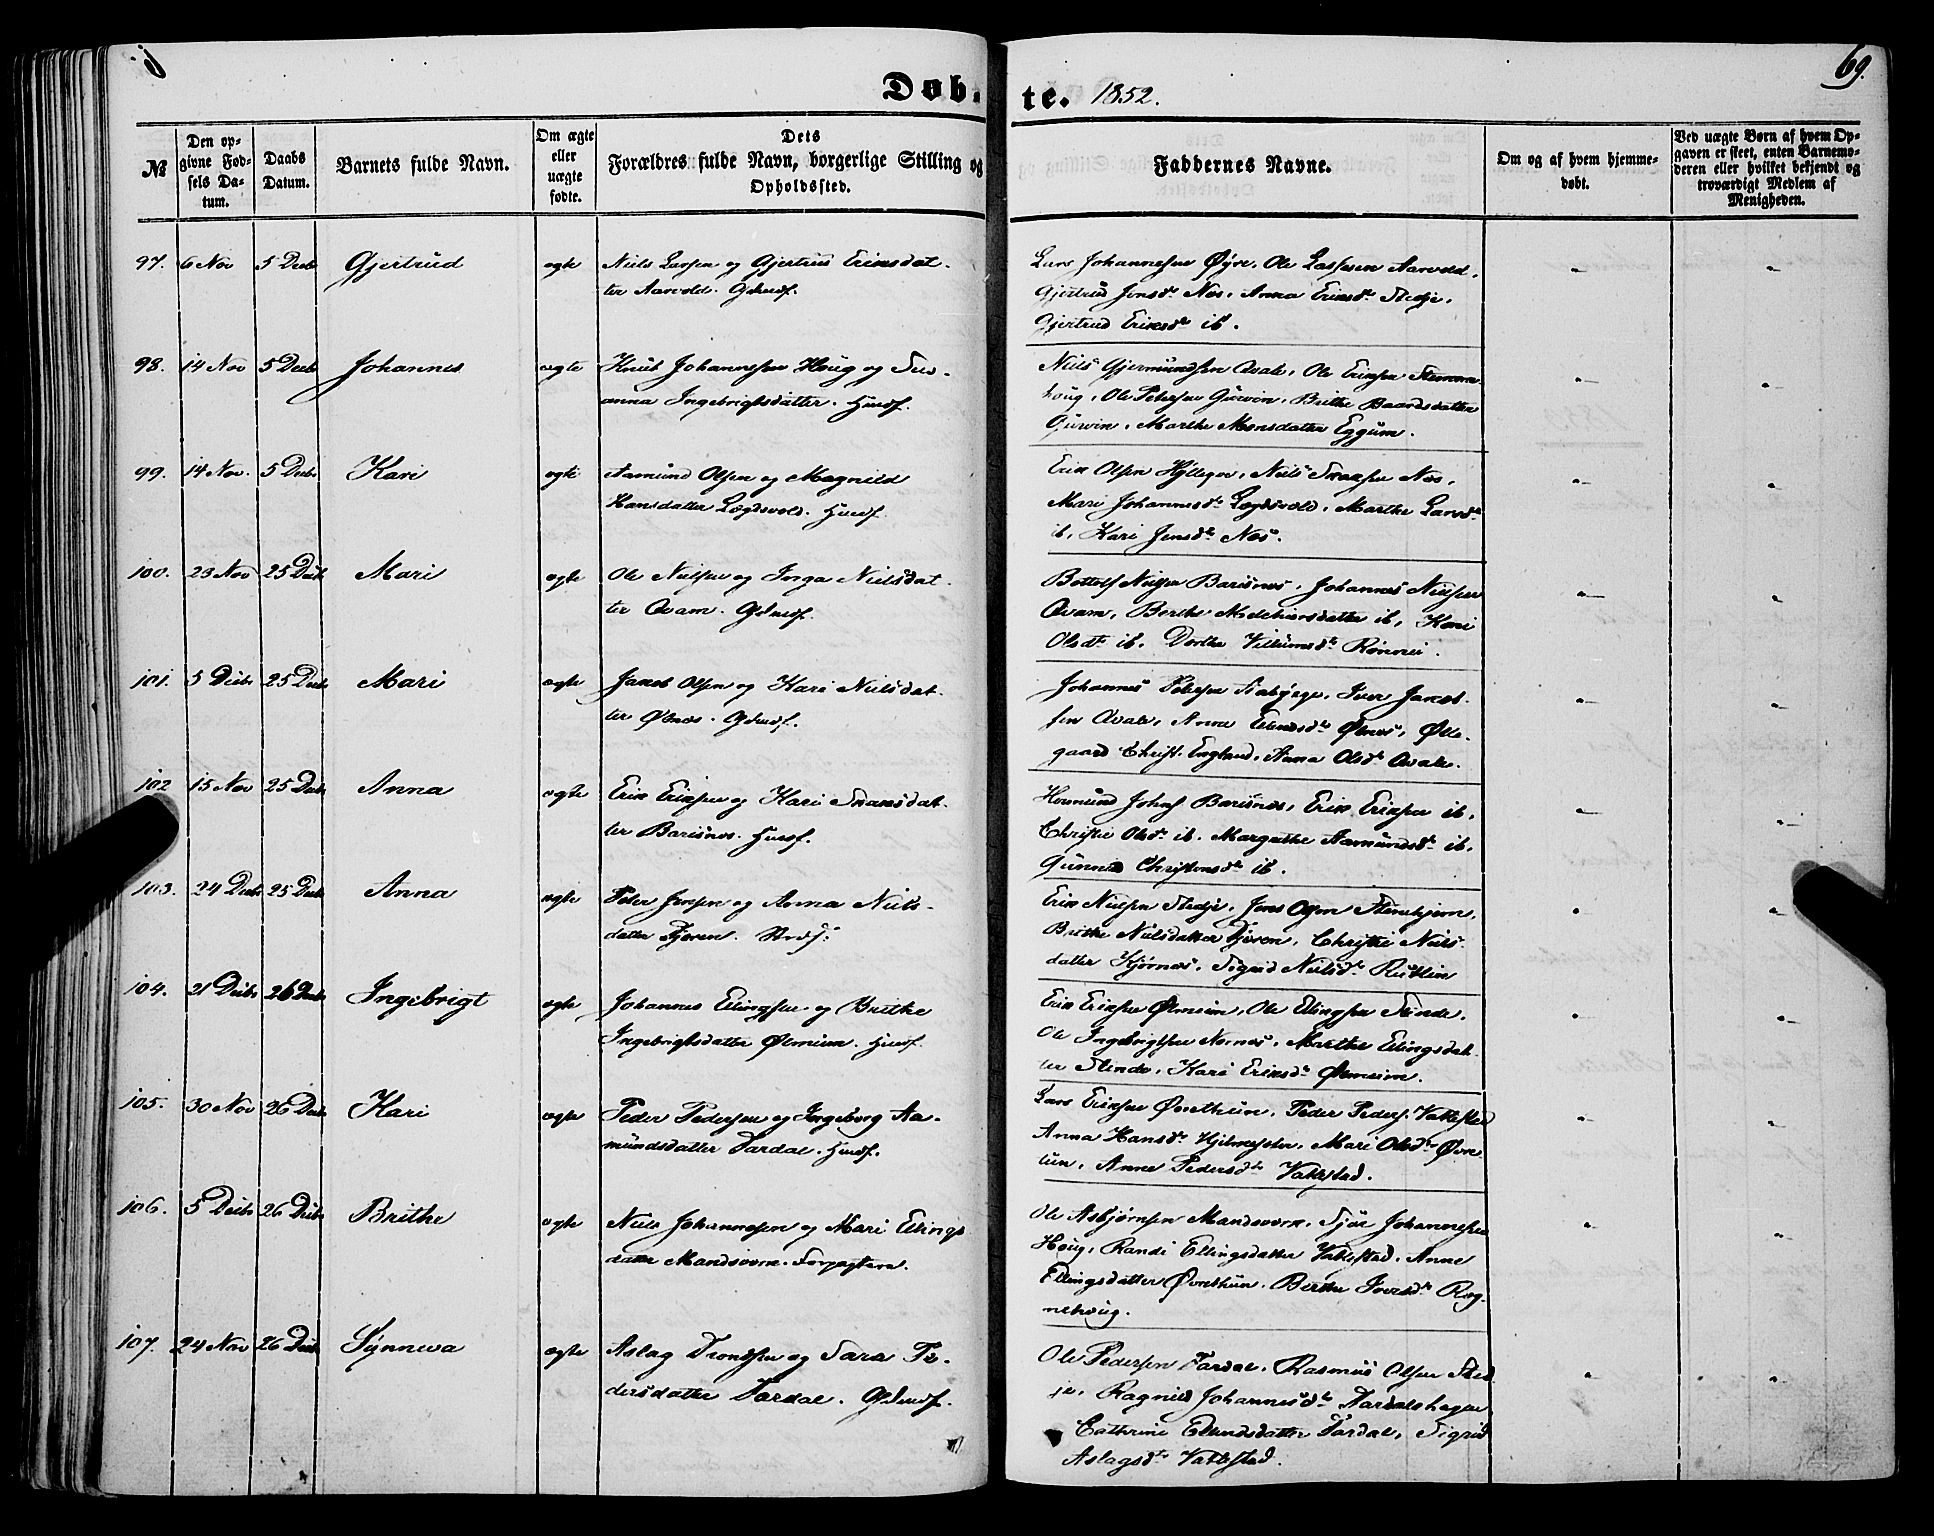 69.
Døb.
te. 1852.
№
Den op-
givne Fød-
sels Da-
tum.
Daabs
Datum.
Barnets fulde Navn.
Om ægte
eller
uægte
fødte.
Dets
Forældres fulde Navn, borgerlige Stilling og
Opholdssted.
Faddernes Navne.
Om og af hvem hjemme-
døbt.
Ved uægte Børn af hvem Op-
gaven er skeet, enten Barnemo-
deren eller hvilket bekjendt og
troværdigt Medlem af
Menigheden.
97. 6 Nov 5 Decb Gjertrud ægte Niels Larsen og Gjertrud Eriksdat-
ter Aarvold. Gdmdf.
Lars Johannesen Øyre, Ole Lassesen Aarvold,
Gjertrud Jensdr Nes, Anna Eriksdr Stedje,
Gjertrud Eriksdr ib.
98. 14 Nov 5 Decb Johannes ægte Knut Johannesen Houg og Su-
anna Ingebrigtsdatter. Husf.
Niels Gjermundsen Qvale, Ole Eriksen
houg, Ole Petersen Gurvin, Brithe Baardsdatter
Gurvin, Marthe Monsdatter Eggum.
99. 14 Nov. 5 Decb Kari ægte Aamund Olsen og Magnild
Hansdatter Lægdsvold. Husf.
Erik Olsen, Niels Nes,
Mari Johannesdr Lægdsvold, Marthe Larsdr
ib, Kari Jensdr Nes.
100. 23 Nov 25 Decb Mari ægte Ole Nielsen og Inga Nielsdat-
ter Qvam. Gdmdf.
Bottolf Nielsen Barsnes, Johannes Nielsen
Qvam, Berthe Melchiorsdatter ib, Kari
Olsdr ib. Dorthe Villumsdr Rønnei.
101. 5 Decb 25 Decb Mari ægte Jacob Olsen og Kari Nielsdat-
ter Ølnes. Gdmdf.
Johannes Petersen, Iver Jacob-
sen Qvale, Anne Ellendsdr Ølnes, Olle-
gaard Christ. England, Anna Olsdr Qvale.
102 15 Nov 25 Decb Anna ægte Erik Eriksen og Kari
ter Barsnes. Husf.
Hermund Johns Barsnes, Erik Eriksen ib,
Christie Olsdr ib. Margrethe Aamundsdr ib,
Gunnild Christensdr ib.
103. 24 Decb 25 Decb Anna ægte Peter Jensen og Anna Niels-
datter Fjæren. Strdsf:
Erik Nielsen Stedje, Jens Olsen Stenehjem,
Brithe Nielsdatter Fjæren, Christie Niels-
datter Kjørnes, Sigrid Nielsdr Rutlin
104. 21 Decb 26 Decb Ingebrigt ægte Johannes Ellingsen og Brithe
Ingebrigtsdatter Ølmeim. Husf.
Erik Eriksen Ølmeim, Ole Ellingsen Slinde,
Ole Ingebrigtsen Nornes, Marthe Ellingsdat-
ter Slinde, Kari Eriksdr Ølmeim.
105. 30 Nov 26 Decb Kari ægte Peder Pedersen og Ingeborg Aa-
mundsdatter Fardal. Husf.
Lars Eriksen Øvrethun, Peder Peders. Vallestad
Anna Hansdr Hjelmeseter, Mari Olsdr Øvre-
tun, Anne Pedersdr Vallestad.
106. 5 Decb 26 Decb Brithe ægte Niels Johannesen og Mari Ellings
datter Mandsverk. Forpagtere.
Ole Asbjørnsen Mandsverk, Sjur Johannesen
Houg, Randi Ellingsdatter Vallestad, Anne
Ellingsdatter Øvrethun, Berthe Iversdr Rog-
nehoug.
107. 24 Nov 26 Decb Synneva ægte Aslag Trondsen og Sara Pe-
dersdatter Fardal. Gdmdf.
Ole Pedersen Fardal, Rasmus Olsen Sted
je, Ragnild Johannesdr Aardalshagen,
Cathrine Ellendsdatter Fardal, Sigrid
Aslagsdr Vallestad.